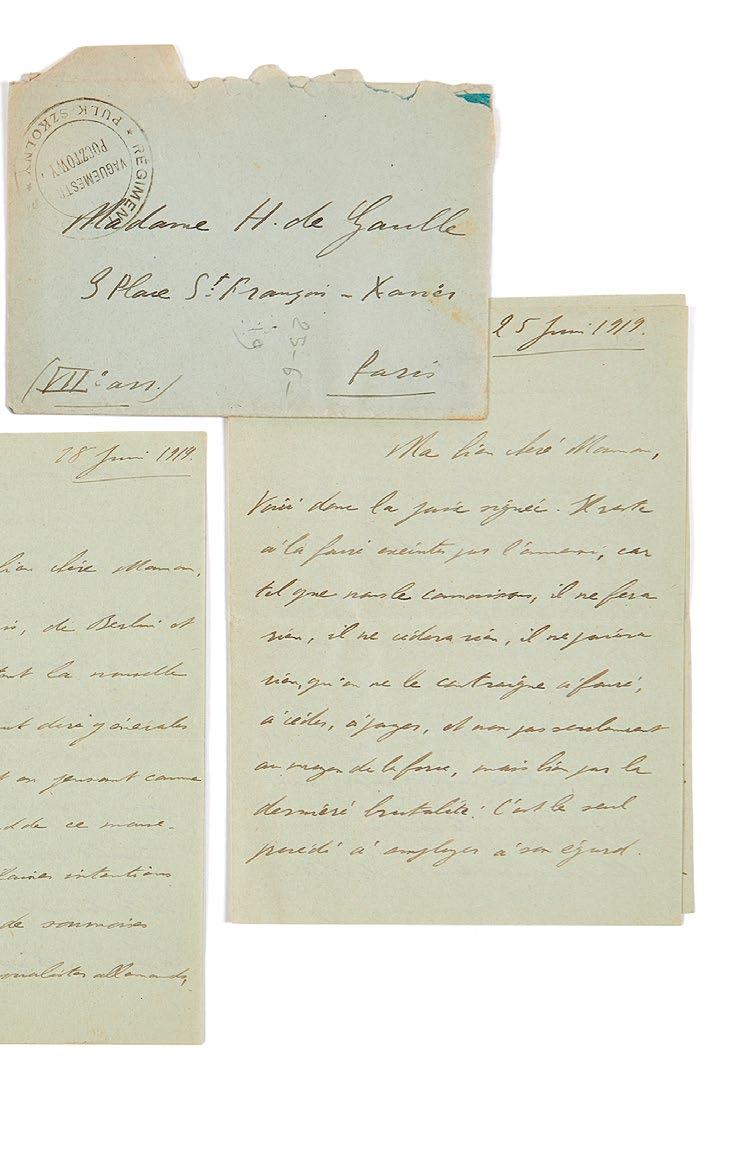 RÉGIMENT
* PULK SZKOLNY *
VAGUEMESTRE
POCZTOWY
Madame H. de Gaulle
3 Place St François-Xavier
25-6-
19
(VIIe arr.)
Paris
25 Juin 1919.
Ma bien chère Maman,
Voici donc la paix signée. Il reste
à la faire exécuter par l'ennemi, car
tel que nous le connaissons, il ne fera
rien, il ne cédera rien, il ne paiera
rien, qu'on ne le contraigne à faire,
à céder, à payer, et non pas seulement
au moyen de la force, mais bien par la
dernière brutalité. C'est le seul
procédé à employer à son égard.
28 Juin 1919.
bien chère Maman,
de Berlin et
la nouvelle
générales
en pensant comme
de ce
intentions
de sournoises
allemands,